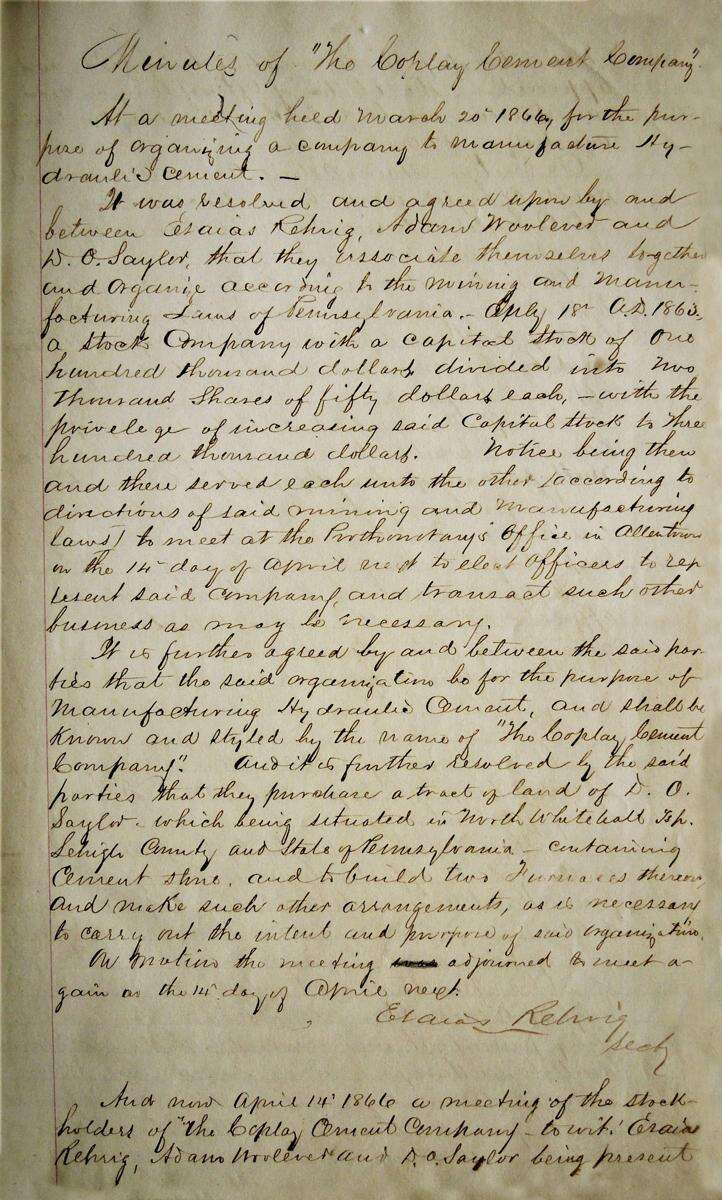 Minutes of "The Coplay Cement Company".
At a meeting held March 20th 1866, for the pur-
pose of organizing a company to manufacture Hy-
draulic Cement. —
It was resolved and agreed upon by and
between Esaias Rehrig, Adam Woolever and
D. O. Saylor, that they associate themselves together
and organize according to the mining and Manu-
facturing Laws of Pennsylvania. - July 18th A.D. 1863.
a stock Company with a capital stock of One
hundred thousand dollars divided into Two
thousand Shares of fifty dollars each, - with the
privelege of increasing said Capital stock to three
hundred thousand dollars. Notice being then
and there served each unto the other (according to
directions of said mining and Manufacturing
laws) to meet at the Prothonotary's Office in Allentown
on the 14th day of April next to elect Officers to rep
resent said company, and transact such other
business as may be necessary.
It is further agreed by and between the said par-
ties that the said organization be for the purpose of
Manufacturing Hydraulic Cement, and shall be
known and styled by the name of "The Coplay Cement
Company". And it is further resolved by the said
parties that they purchase a tract of land of D. O.
Saylor - which being situated in North Whitehall Tsp.
Lehigh County and State of Pennsylvania - containing
Cement stone, and to build two Furnaces thereon,
and make such other arrangements, as is necessary
to carry out the intent and purpose of said organization.
On motion the meeting adjourned to meet a-
gain on the 14th day of April next.
Esaias Rehrig
Secty
And now April 14th 1866 a meeting of the stock-
holders of "the Coplay Cement Company - to wit: Esaias
Rehrig, Adam Woolever and D. O. Saylor being present